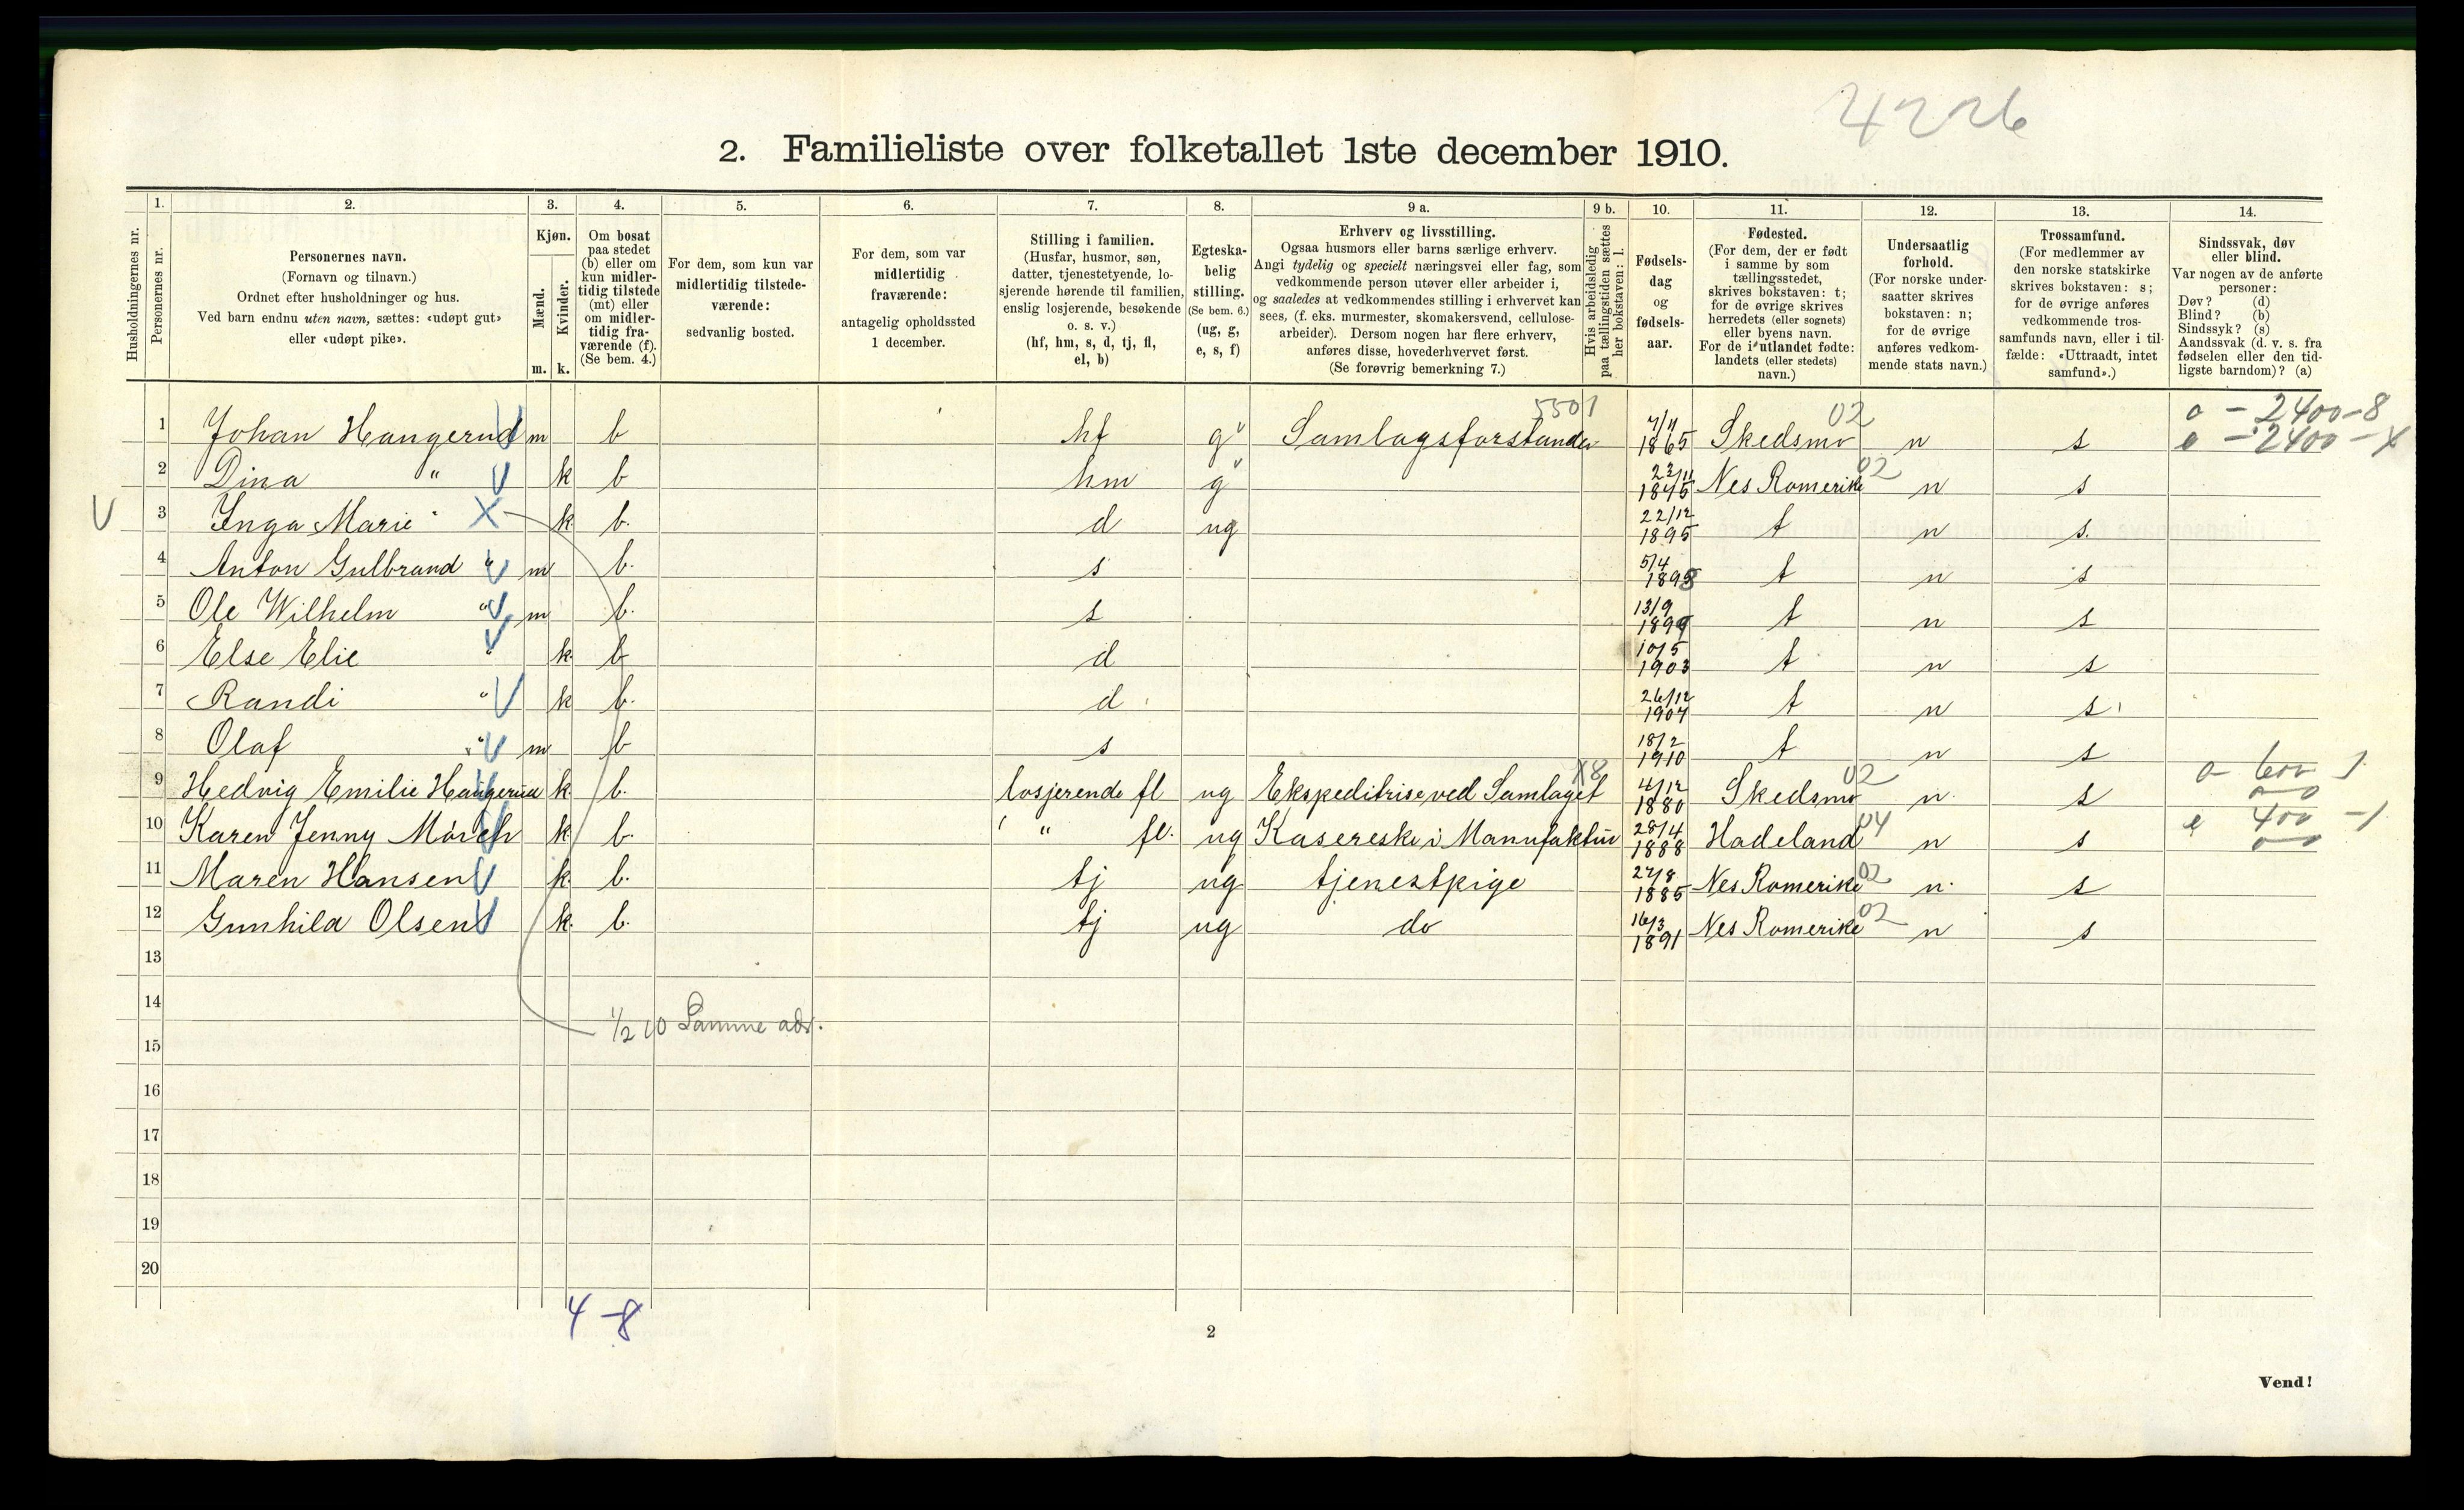 4226
2. Familieliste over folketallet 1ste december 1910.
1. 2. 3. 4. 5. 6. 7. 8. 9 a. 9 b. 10. 11. 12. 13. 14.
Husholdningernes nr.
Personernes nr.
Personernes navn.
(Fornavn og tilnavn.)
Ordnet efter husholdninger og hus.
Ved barn endnu uten navn, sættes: «udøpt gut»
eller «udøpt pike».
Kjøn.
Mænd.
Kvinder.
m. k.
Om bosat
paa stedet
(b) eller om
kun midler-
tidig tilstede
(mt) eller
om midler-
tidig fra-
værende (f).
(Se bem. 4.)
For dem, som kun var
midlertidig tilstede-
værende:
sedvanlig bosted.
For dem, som var
midlertidig
fraværende:
antagelig opholdssted
1 december.
Stilling i familien.
(Husfar, husmor, søn,
datter, tjenestetyende, lo-
sjerende hørende til familien,
enslig losjerende, besøkende
o. s. v.)
(hf, hm, s, d, tj, fl,
el, b)
Egteska-
belig
stilling.
(Se bem. 6.)
(ug, g,
e, s, f)
Erhverv og livsstilling.
Ogsaa husmors eller barns særlige erhverv.
Angi tydelig og specielt næringsvei eller fag, som
vedkommende person utøver eller arbeider i,
og saaledes at vedkommendes stilling i erhvervet kan
sees, (f. eks. murmester, skomakersvend, cellulose-
arbeider). Dersom nogen har flere erhverv,
anføres disse, hovederhvervet først.
(Se forøvrig bemerkning 7.)
Hvis arbeidsledig
paa tællingstiden sættes
her bokstaven: l.
Fødsels-
dag
og
fødsels-
aar.
Fødested.
(For dem, der er født
i samme by som
tællingsstedet,
skrives bokstaven: t;
for de øvrige skrives
herredets (eller sognets)
eller byens navn.
For de i utlandet fødte:
landets (eller stedets)
navn.)
Undersaatlig
forhold.
(For norske under-
saatter skrives
bokstaven: n;
for de øvrige
anføres vedkom-
mende stats navn.)
Trossamfund.
(For medlemmer av
den norske statskirke
skrives bokstaven: s;
for de øvrige anføres
vedkommende tros-
samfunds navn, eller i til-
fælde: «Uttraadt, intet
samfund».)
Sindssvak, døv
eller blind.
Var nogen av de anførte
personer:
Døv? (d)
Blind? (b)
Sindssyk? (s)
Aandssvak (d. v. s. fra
fødselen eller den tid-
ligste barndom)? (a)
5501 02 o - 2400-8
1 Johan Haugerud m b hf g Samlagsforstander 7/11 1865 Skedsmo n s e - 2400 - x
2 Dina " k b hm g 23/11 1845 Nes Romerike 02 n s
V 3 Inga Marie " X k b. d ug 22/12 1895 t n s.
4 Anton Gulbrand " m b. s 5/4 1898 t n s
5 Ole Wilhelm " m b. s 13/9 1899 t n s
6 Else Elie " k. b d 10/5 1903 t n s
7 Randi " k b. d 26/12 1904 t n s
8 Olaf " m b s 18/2 1910 t n s
9 Hedvig Emilie Haugerud k. b. losjerende fl ug Ekspeditrise ved Samlaget 4/12 1880 Skedsmo 02 n. s o 600 1
10 Karen Jenny Mörch k. b. " fl. ug Kasereske i Manufaktur 28/4 1888 Hadeland 04 n s e 400 - 1
11 Maren Hansen k. b. tj ug tjenestpige 27/8 1885 Nes Romerike 02 n. s
12 Gunhild Olsen k. b. tj ug do 16/3 1891 Nes Romerike 02 n s
13
14
1/2 10 Samme adr.
15
16
17
18
19
20
4 - 8
2
Vend!